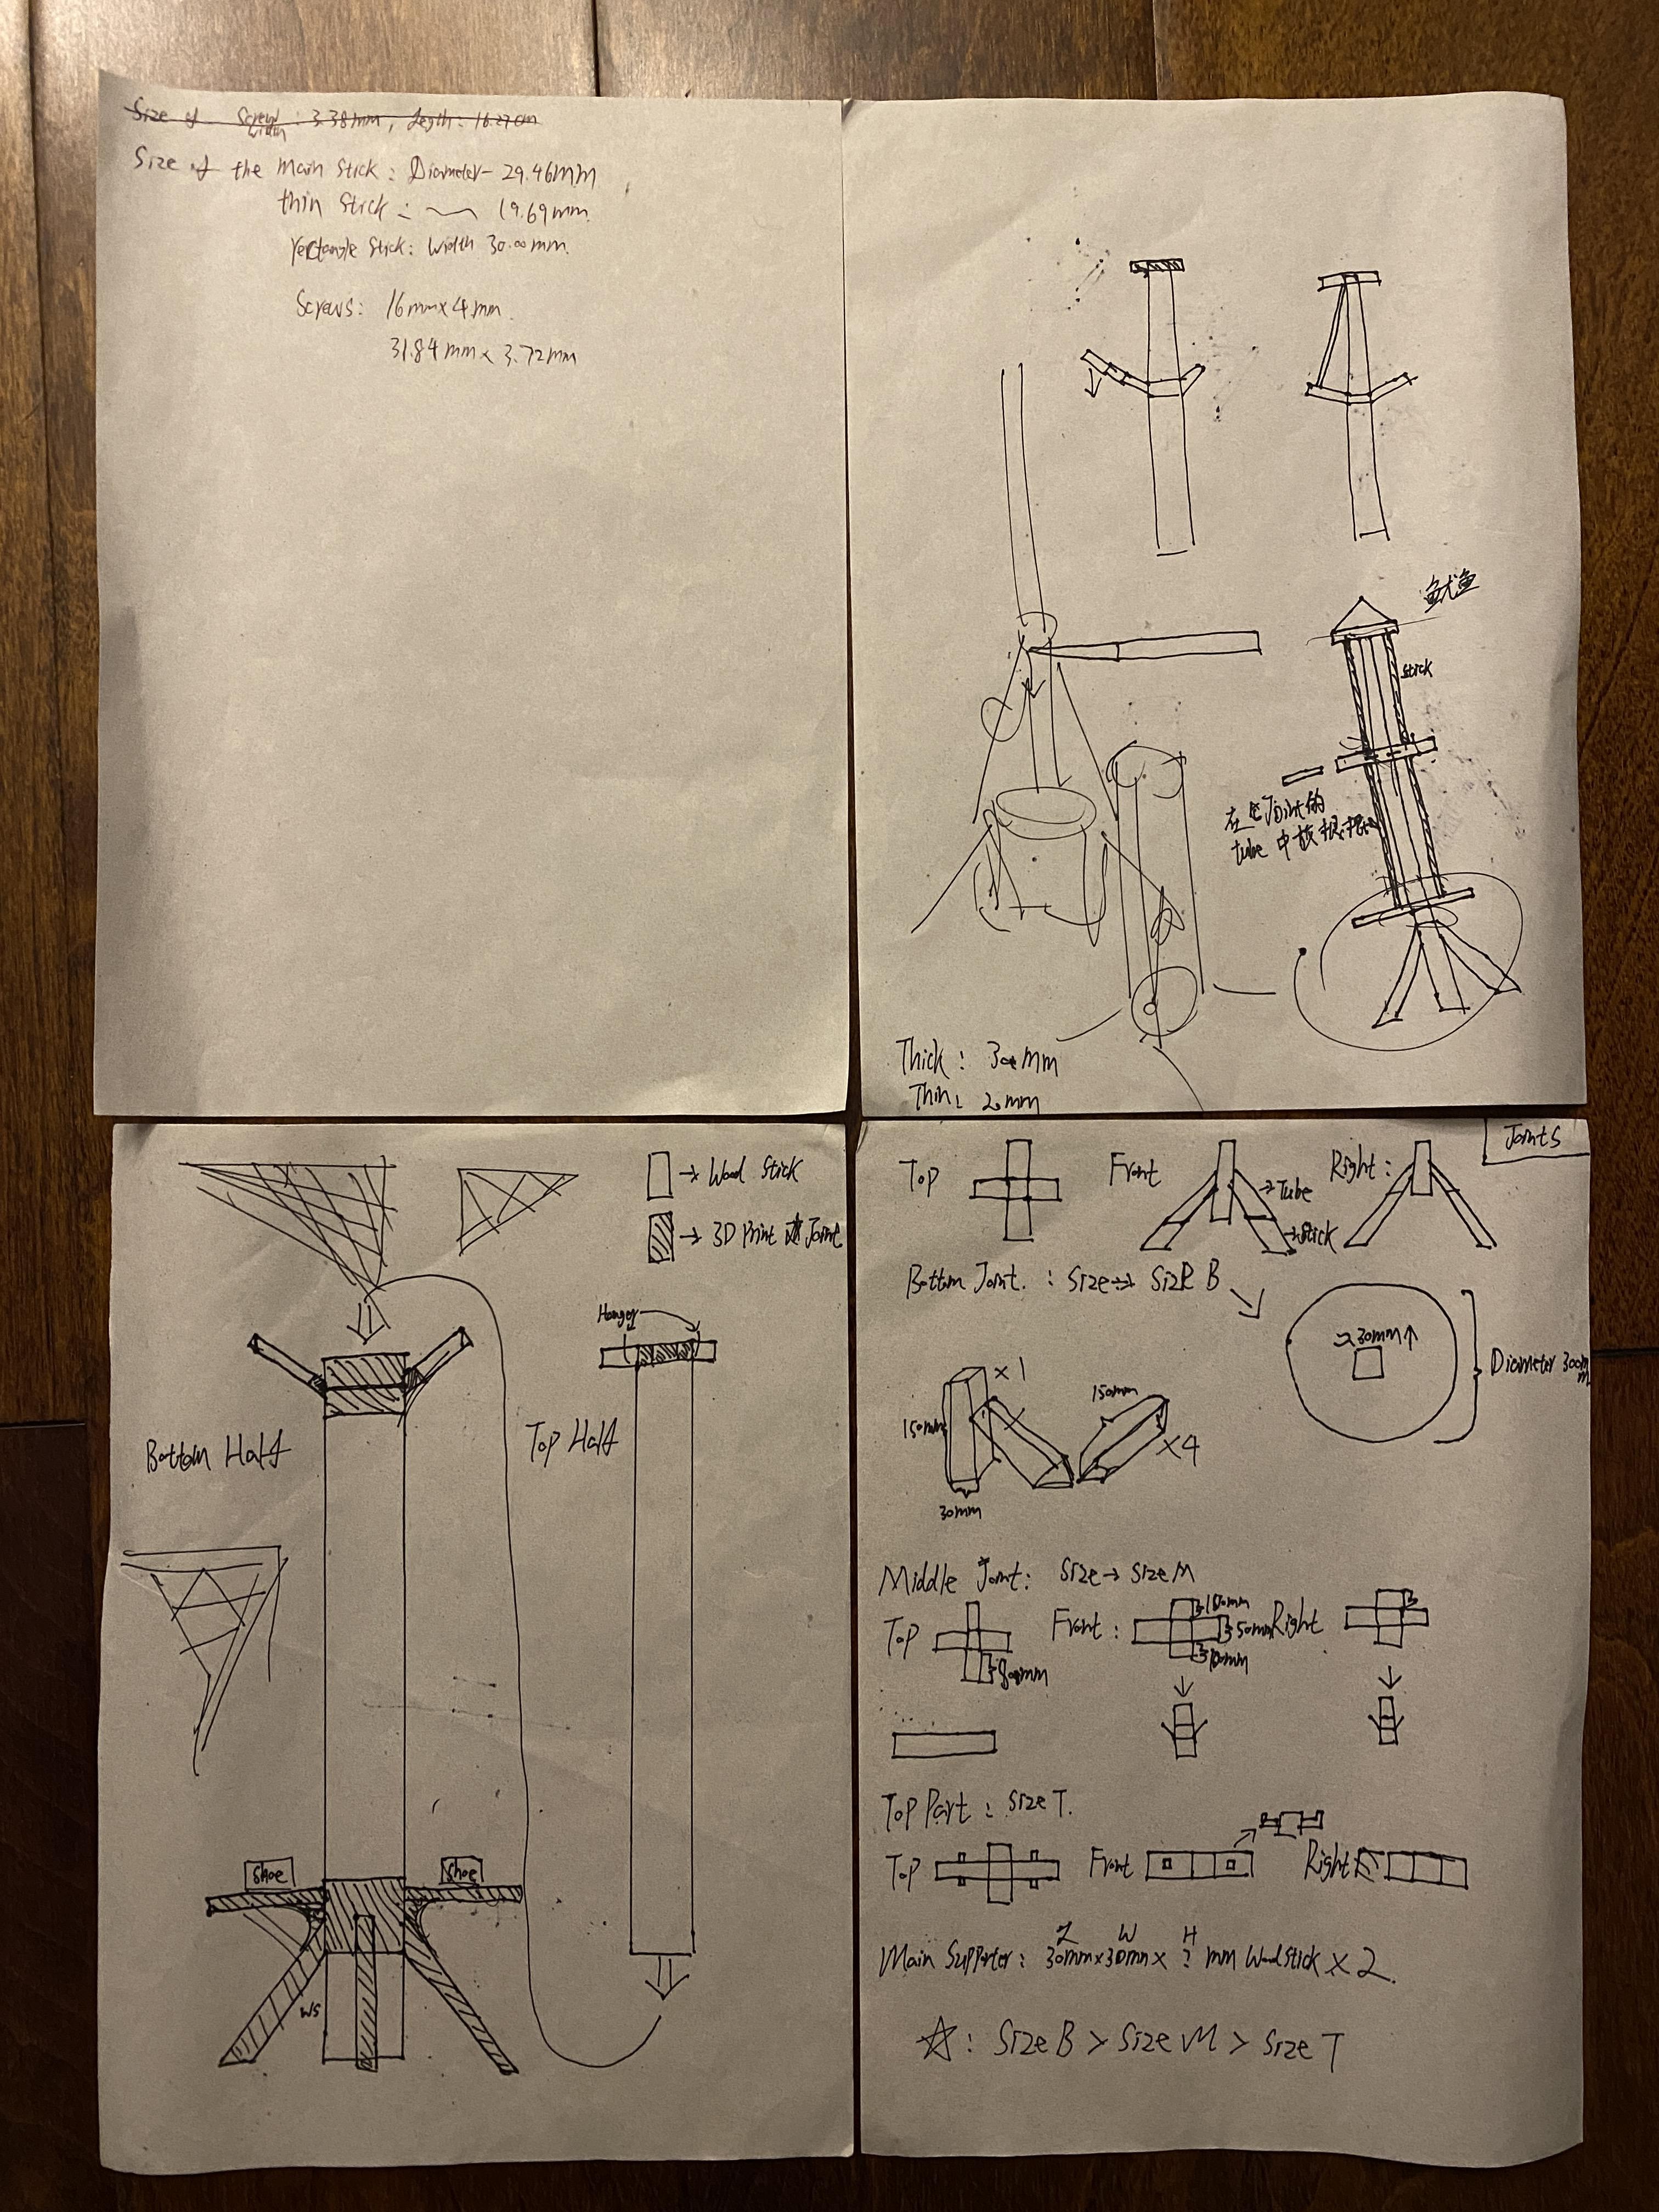 Size of Screw : 3.38mm, Legth : 16.27cm
width
Size of the Main Stick : Diameter- 29.46mm
thin Stick : 19.69mm.
rectangle Stick: Width 30.00mm.
Screws: 16mm×4mm.
31.84mm × 3.72mm
鱿鱼
stick
在 Joint的
tube 中放
Thick : 30mm
Thin: 20mm
→ Wood Stick
→ 3D Print Joint
Hanger
Bottom Half
Top Half
Shoe
Shoe
WS
Joints
Top
Front
→Tube
→Stick
Right :
Bottom Joint. : Size→ Size B
30mm
Diameter 300mm
×1
150mm
30mm
150mm
×4
Middle Joint: Size→ Size M
Top
80mm
Front :
10mm
50mm
10mm
Right
Top Part : Size T.
Top
Front
Right
L W H
Main Supporter : 30mm×30mm× ? mm Wood Stick × 2.
☆ : Size B > Size M > Size T